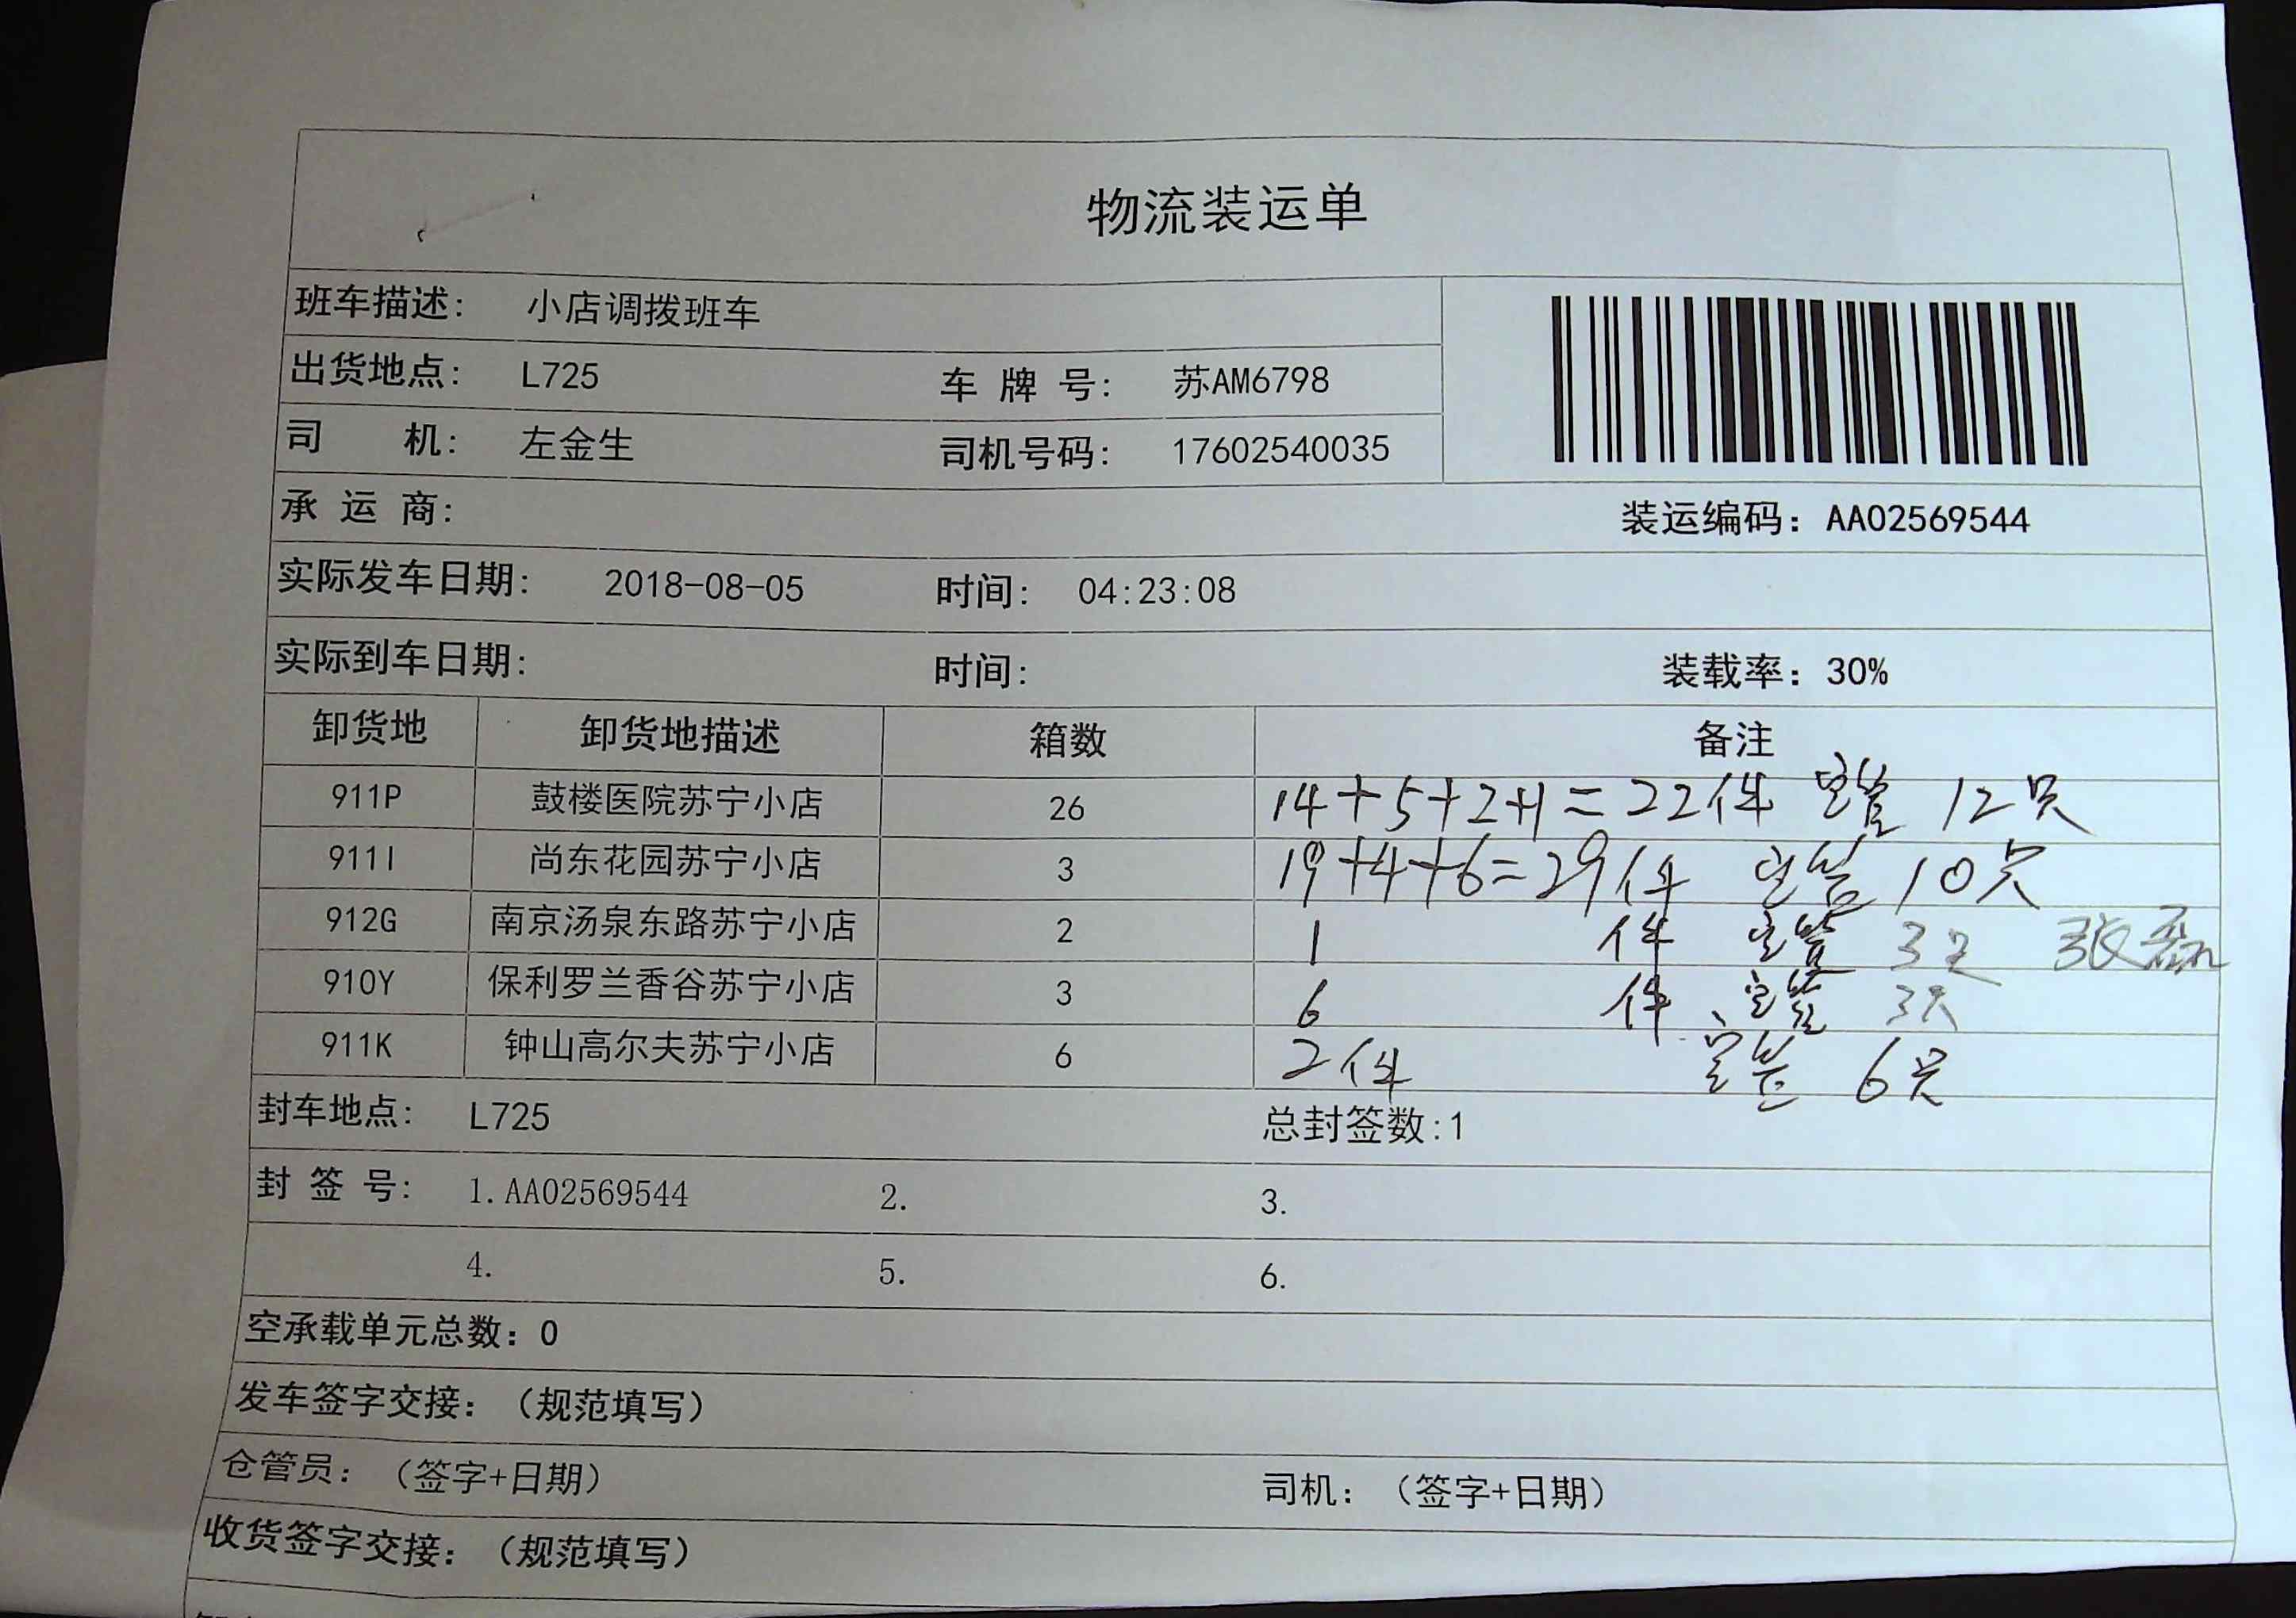 物流装运单
班车描述: 小店调拨班车
出货地点: L725 车 牌 号: 苏AM6798
司 机: 左金生 司机号码: 17602540035
承 运 商: 装运编码: AA02569544
实际发车日期: 2018-08-05 时间: 04:23:08
实际到车日期: 时间: 装载率: 30%
卸货地 卸货地描述 箱数 备注
911P 鼓楼医院苏宁小店 26 14+5+2+1=22件 12只
911I 尚东花园苏宁小店 3 19+4+6=29件 10只
912G 南京汤泉东路苏宁小店 2 1 件 3只
910Y 保利罗兰香谷苏宁小店 3 6 件 3只
911K 钟山高尔夫苏宁小店 6 2件 6只
封车地点: L725 总封签数:1
封 签 号: 1.AA02569544 2. 3.
4. 5. 6.
空承载单元总数: 0
发车签字交接: (规范填写)
仓管员: (签字+日期) 司机: (签字+日期)
收货签字交接: (规范填写)